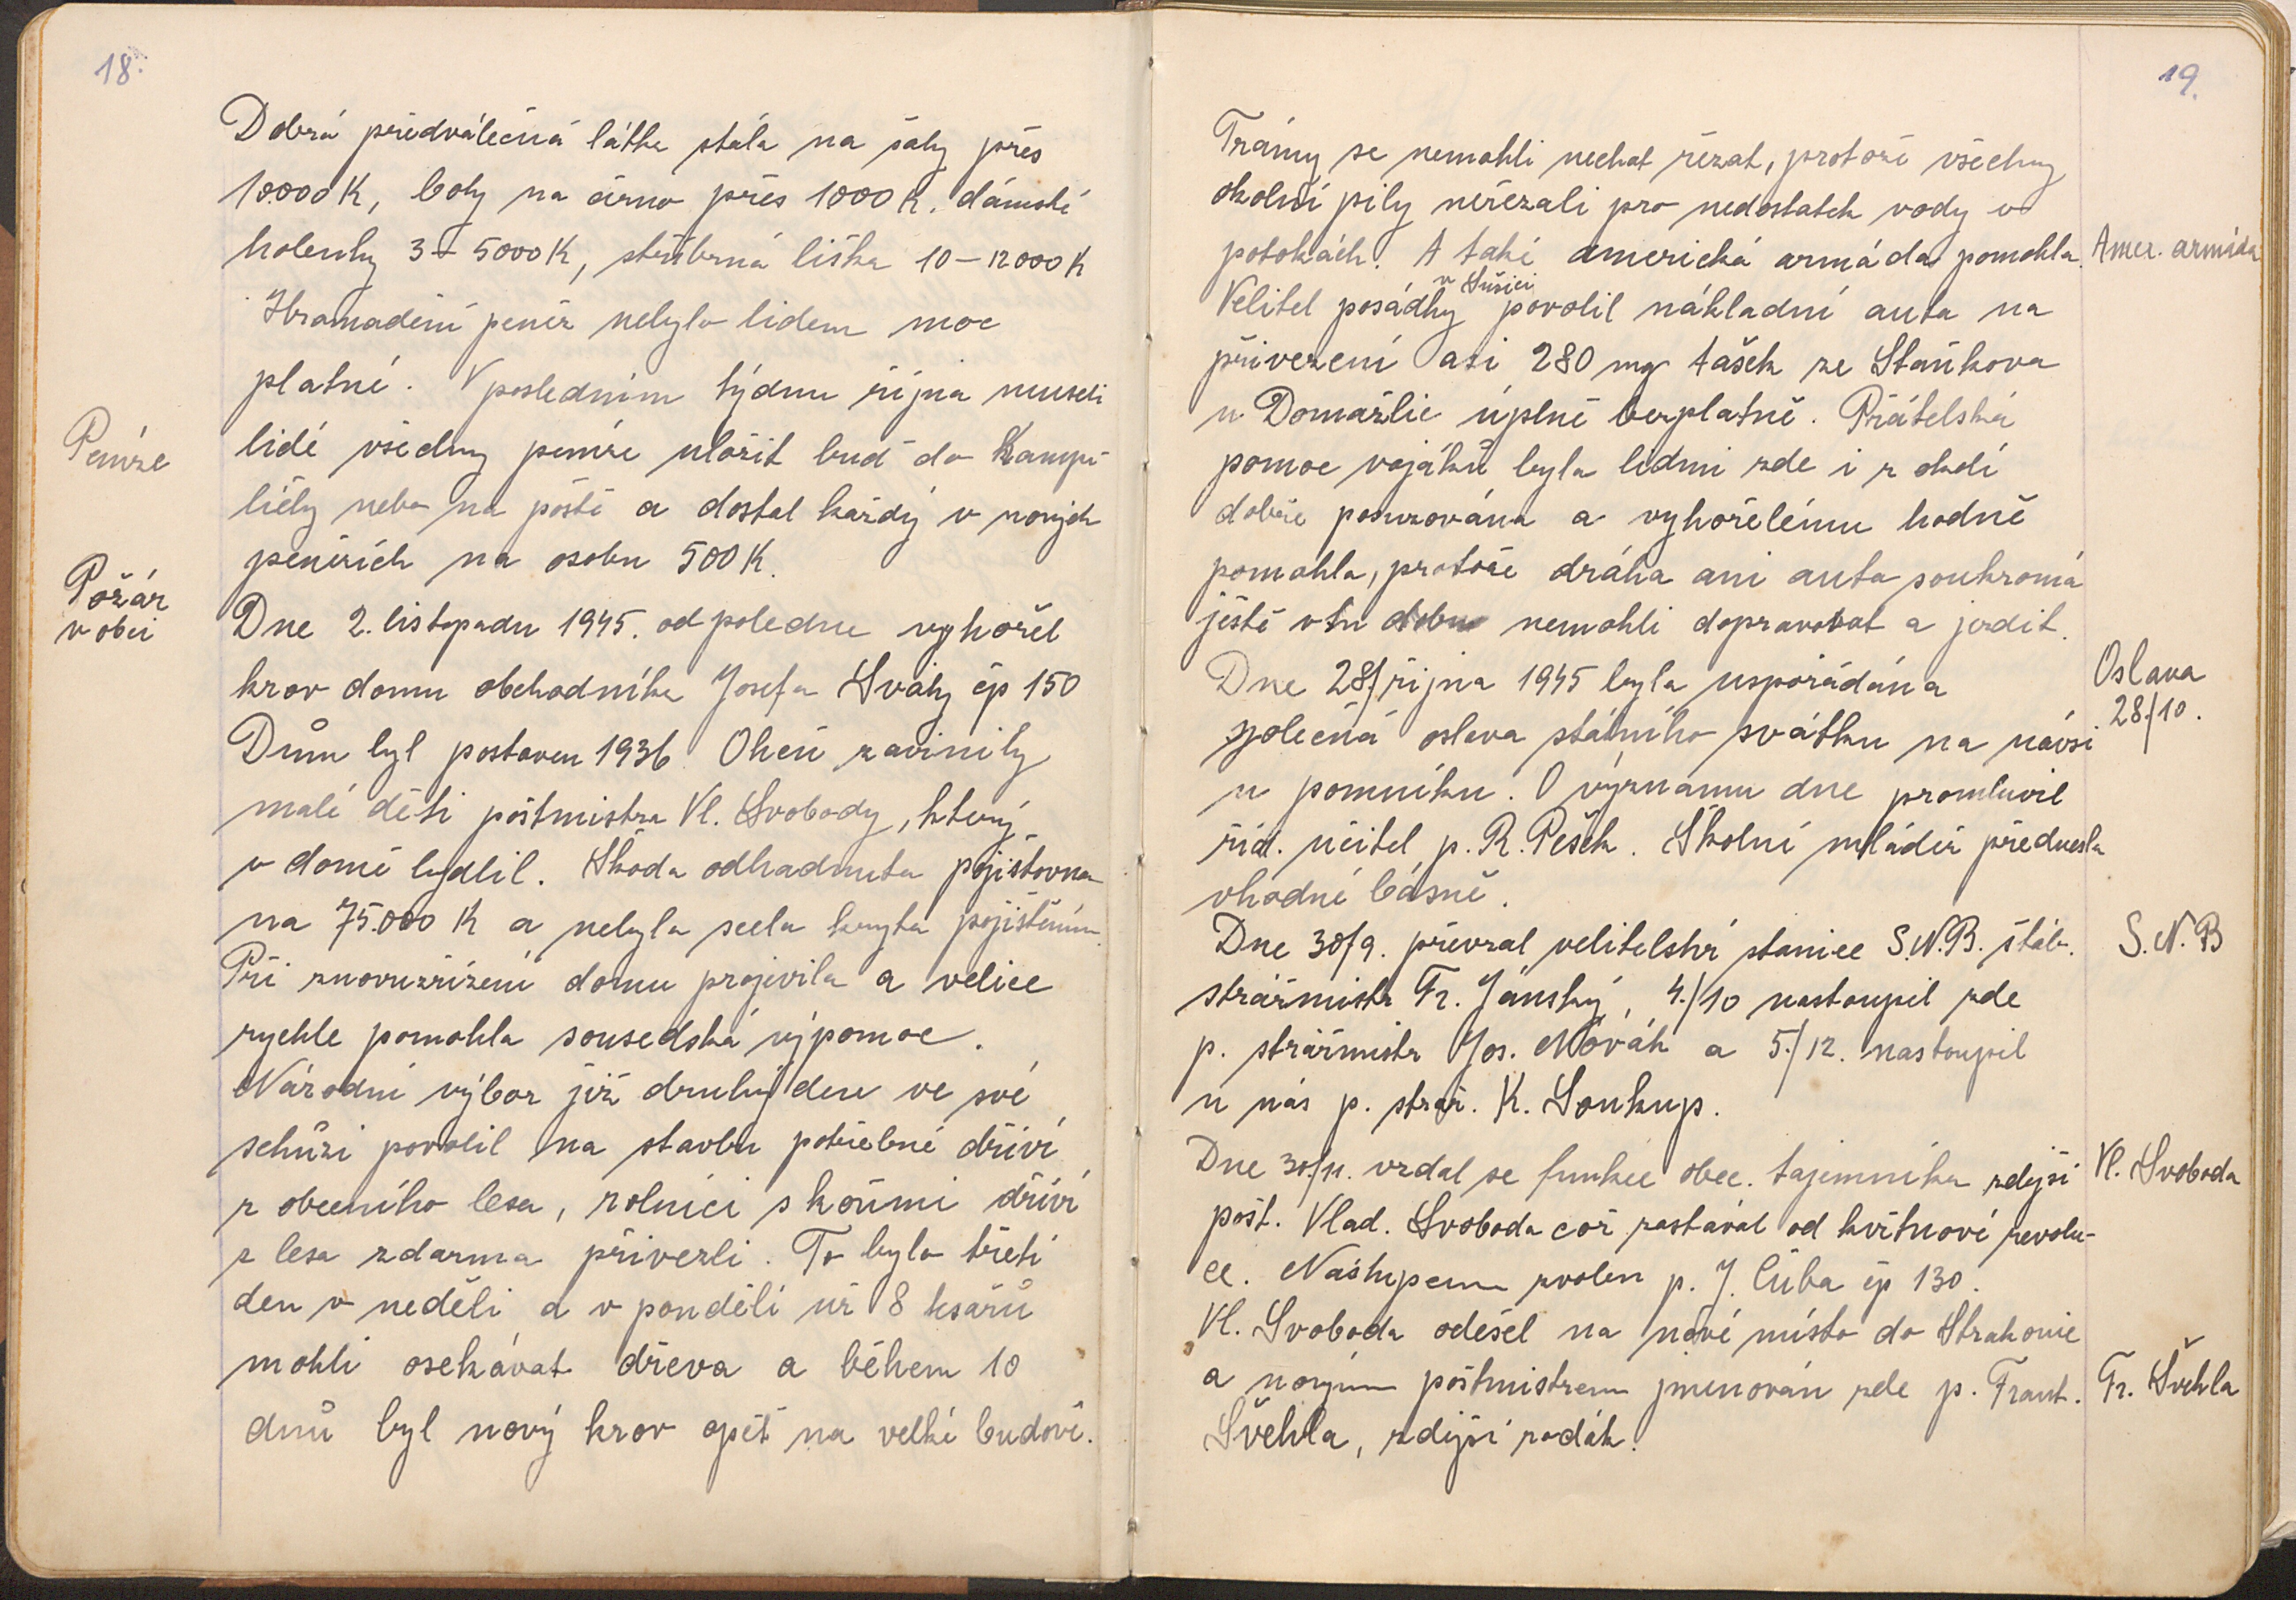 18.
Dobrá předválečná látka stála na šaty přes
10.000 K, boty na černo přes 1000 K, dámské
holenky 3 – 5000 K, stříbrná liška 10 – 12000 K
Hromadění peněz nebylo lidem moc
platné. V posledním týdnu října museli
Peníze
lidé všechny peníze uložit buď do kampe-
ličky nebo na poště a dostal každý v nových
penězích na osobu 500 K.
Požár
v obci
Dne 2. listopadu 1945. odpoledne vyhořel
krov domu obchodníka Josefa Sváhy čp 150
Dům byl postaven 1936. Oheň zavinily
malé děti poštmistra Vl. Svobody, který
v domě bydlil. Škoda odhadnuta pojišťovna
na 75.000 K a nebyla scela kryta pojištěním.
Při znovuzřízení domu projevila a velice
rychle pomohla sousedská výpomoc.
Národní výbor již druhý den ve své
schůzi povolil na stavbu potřebné dříví
z obecního lesa, rolníci s koňmi dříví
z lesa zdarma přivezli. To bylo třetí
den v neděli a v pondělí už 8 tesařů
mohli osekávat dřeva a během 10
dnů byl nový krov opět na velké budově.
19.
Trámy se nemohli nechat řezat, protože všechny
okolní pily neřezali pro nedostatek vody v
potokách. A také americká armáda pomohla.
Amer. armáda
v Sušici
Velitel posádky povolil nákladní auta na
přivezení asi 280 mq tašek ze Staňkova
u Domažlic úplně bezplatně. Přátelská
pomoc vojáků byla lidmi zde i z okolí
dobře posuzována a vyhořelému hodně
pomohla, protože dráha ani auta soukromá
ještě v tu dobu nemohli dopravovat a jezdit.
Dne 28./října 1945 byla uspořádána
Oslava
28./10.
společná oslava státního svátku na návsi
u pomníku. O významu dne promluvil
říd. učitel p. R. Pešek. Školní mládež přednesla
vhodné básně.
Dne 30/9. převzal velitelství stanice S.N.B. štáb.
S.N.B
strážmistr Fr. Jánský, 4./10 nastoupil zde
p. strážmistr Jos. Novák a 5./12. nastoupil
u nás p. stráž. K. Soukup.
Dne 30/11. vzdal se funkce obec. tajemníka zdejší
Vl. Svoboda
pošt. Vlad. Svoboda což zastával od květnové revolu-
ce. Nástupcem zvolen p. J. Čuba čp 130.
Vl. Svoboda odešel na nové místo do Strakonic
a novým poštmistrem jmenován zde p. Frant.
Fr. Švehla
Švehla, zdejší rodák.